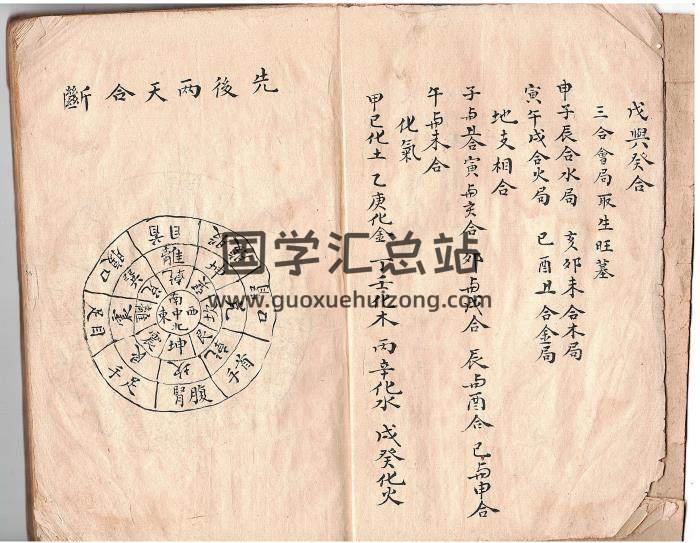 戊與癸合
三合會局取生旺墓
申子辰合水局 亥卯未合木局
寅午戌合火局 巳酉丑合金局
地支相合
子与丑合 寅与亥合 卯与戌合 辰与酉合 巳与申合
午与未合
化氣
甲己化土 乙庚化金 丁壬化木 丙辛化水 戊癸化火
先後兩天合斷
南
東中西
北
離
坤
震
坎
目首
腹口
足目
手足
腎腹
手首
耳口
国学汇总站
www.guoxuehuizong.com